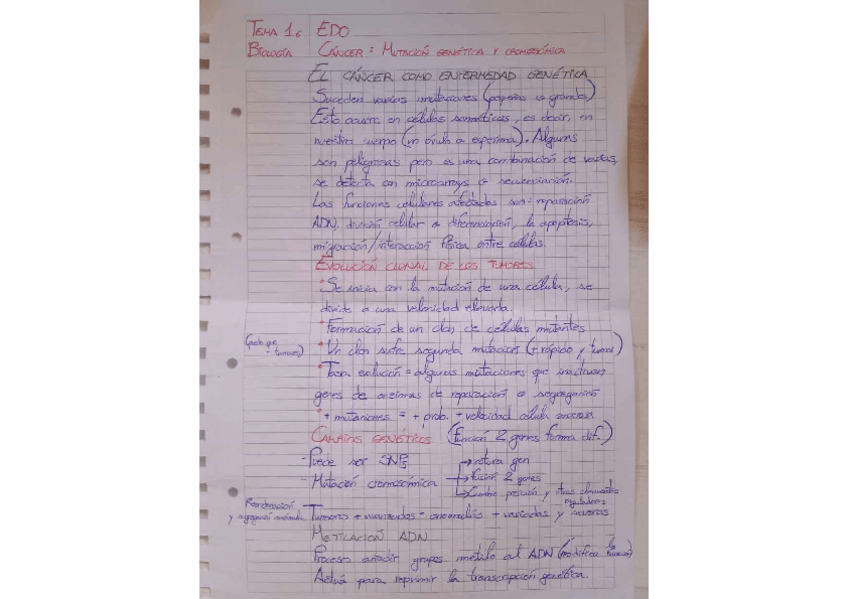 TEMA 1.6 EDO
BIOLOGÍA CÁNCER = MUTACIÓN GENÉTICA Y CROMOSÓMICA
EL CÁNCER COMO ENFERMEDAD GENÉTICA
Suceden varias mutaciones (pequeñas o grandes)
Esto ocurre en células somáticas, es decir, en
nuestro cuerpo (no óvulo o esperma). Algunas
son peligrosas pero es una combinación de varias,
se detecta con microarrays o secuenciación.
Las funciones celulares afectadas son = reparación
ADN, división celular o diferenciación, la apoptosis,
migración/interacción física entre células.
EVOLUCIÓN CLONAL DE LOS TUMORES
• Se inicia con la mutación de una célula, se
divide a una velocidad elevada.
• Formación de un clon de células mutantes
• Un clon sufre segunda mutación (+ rápido y tumor)
• Tasa evolución = algunas mutaciones que inactivan
genes de enzimas de reparación o segregación
• + mutaciones = + prob. + velocidad célula
CAMBIOS GENÉTICOS (Función 2 genes forma dif.)
- Puede ser SNPs → rotura gen
- Mutación cromosómica → fusión 2 genes
→ Cambio posición y otros elementos
reguladores
Reordenación
y segregación anómala
Tumores + avanzados = anomalías + variadas y
METILACIÓN ADN
Proceso añadir grupos metilo al ADN (modifica la
Actúa para reprimir la transcripción genética.